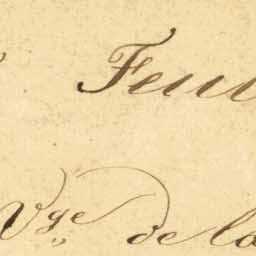 Feu
Vge de la